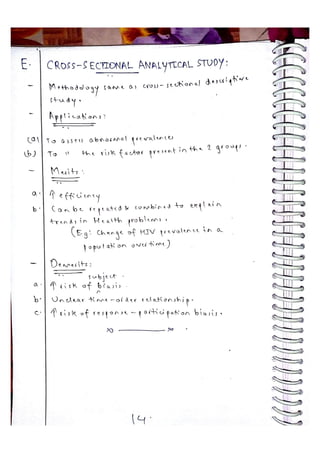 E. CROSS-SECTIONAL ANALYTICAL STUDY:
- Methodology same as cross-sectional descriptive
study.
- Applications:
(a) To assess abnormal prevalences
(b) To " the risk factor present in the 2 groups.
- Merits:
a. ↑ efficiency
b. Can be repeated & combined to explain
trends in Health problems.
(Eg: Change of HIV prevalence in a
population overtime)
- Demerits:
subject
a. ↑ risk of ^ biasis.
b. Unclear time-order relationship.
c. ↑ risk of response-participation biasis.
14.